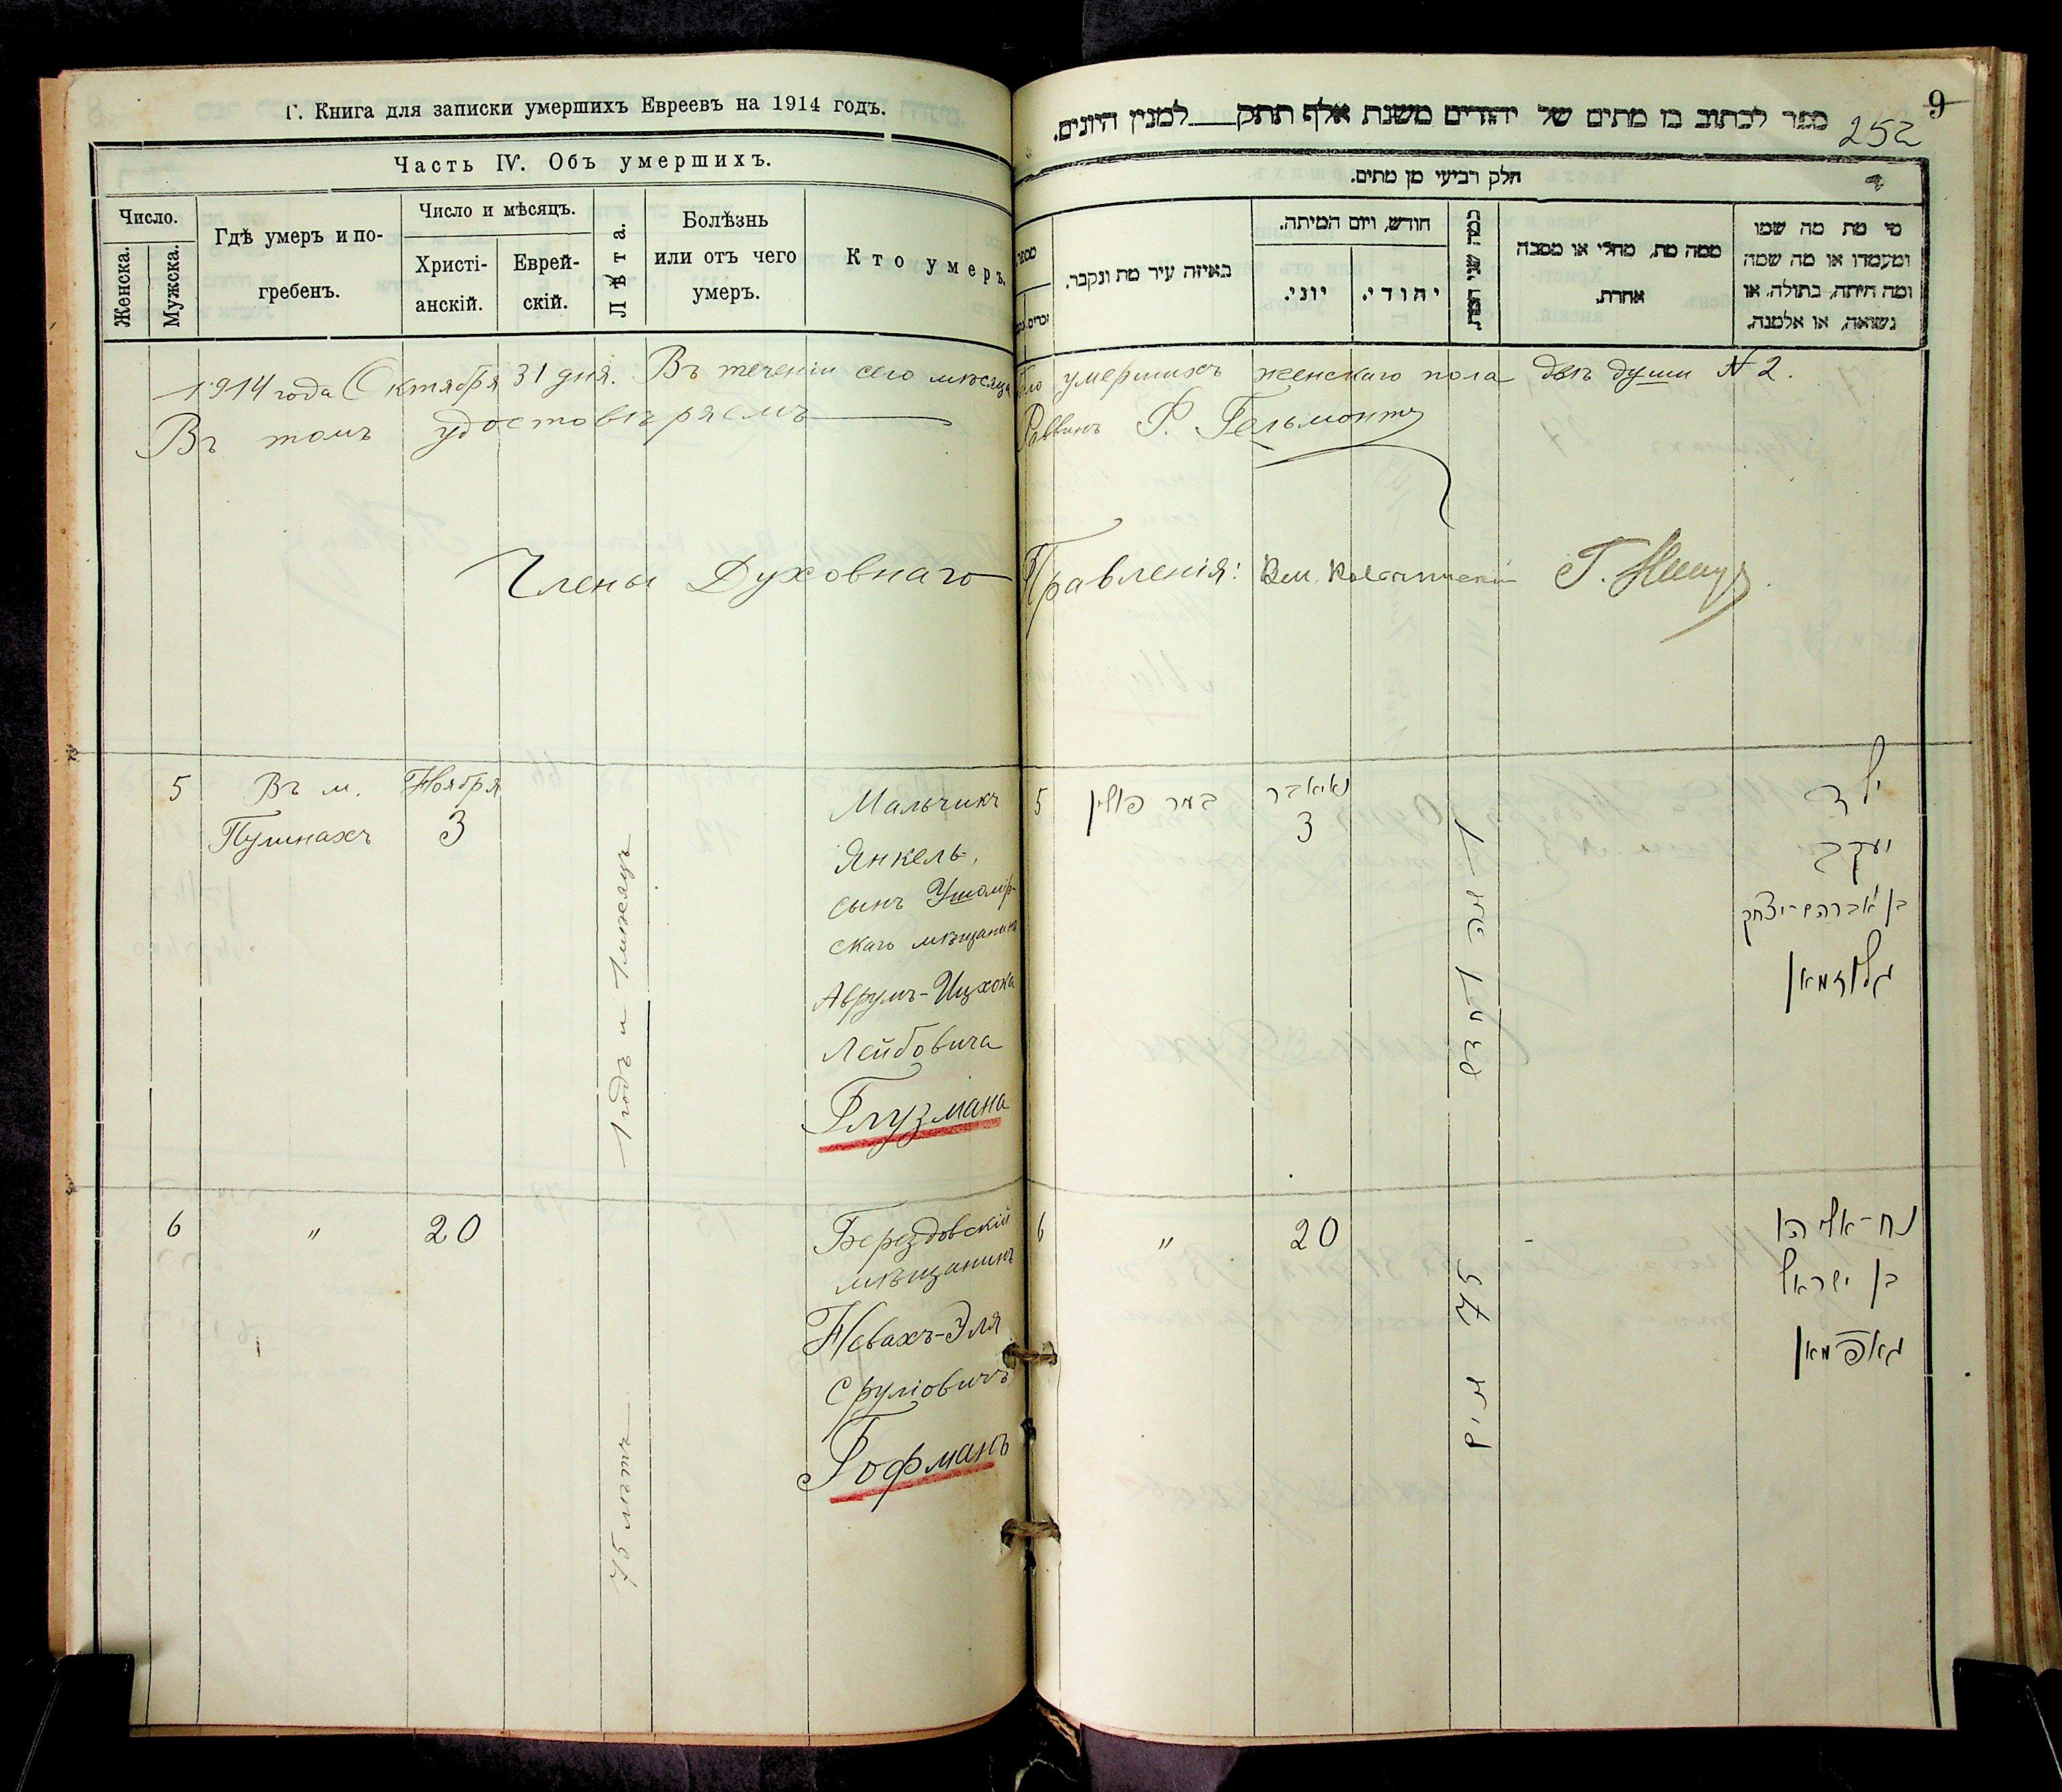 Г. Книга для записки умершихъ Евреевъ на 1914 годъ.
Часть IV. Объ умершихъ.
Число.
Женска.
Мужска.
Гдѣ умеръ и по-
гребенъ.
Число и мѣсяцъ.
Христі-
анскій.
Еврей-
скій.
Лѣта.
Болѣзнь
или отъ чего
умеръ.
Кто умеръ.
9
252
ספר לכתוב בו מתים של יהודים משנת אלף תתק למנין היונים.
חלק רביעי מן מתים.
באיזה עיר מת ונקבר.
חודש, ויום המיתה.
יוני.
יהודי.
ממה מת, מחלי או מסבה
אחרת.
מי מת מה שמו
ומעמדו או מה שמה
ומה היתה, בתולה, או
נשואה, או אלמנה.
1914 года Октября 31 дня. Въ теченіи сего мѣсяца было умершихъ женскаго пола двѣ души № 2.
Въ томъ удостовѣряемъ Раввинъ Ф. Гельмонтъ
Члены Духовнаго Правленія:
5
Въ м.
Пулинахъ
Ноября
3
1 годъ и 1 мѣсяцъ
Мальчикъ
Янкель,
сынъ Ушомір-
скаго мѣщанина
Аврумъ-Ицхока
Лейбовича
Глузмана
5
במר פולין
נאיאבר
3
ילד
יעקב
בן אברהם-יצחק
גלוזמאן
6
"
20
75 лѣтъ
Берездовскій
мѣщанинъ
Невахъ-Эля
Сруліовичъ
Гофманъ
6
"
20
75
נח-אליהו
בן ישראל
גאפמאן